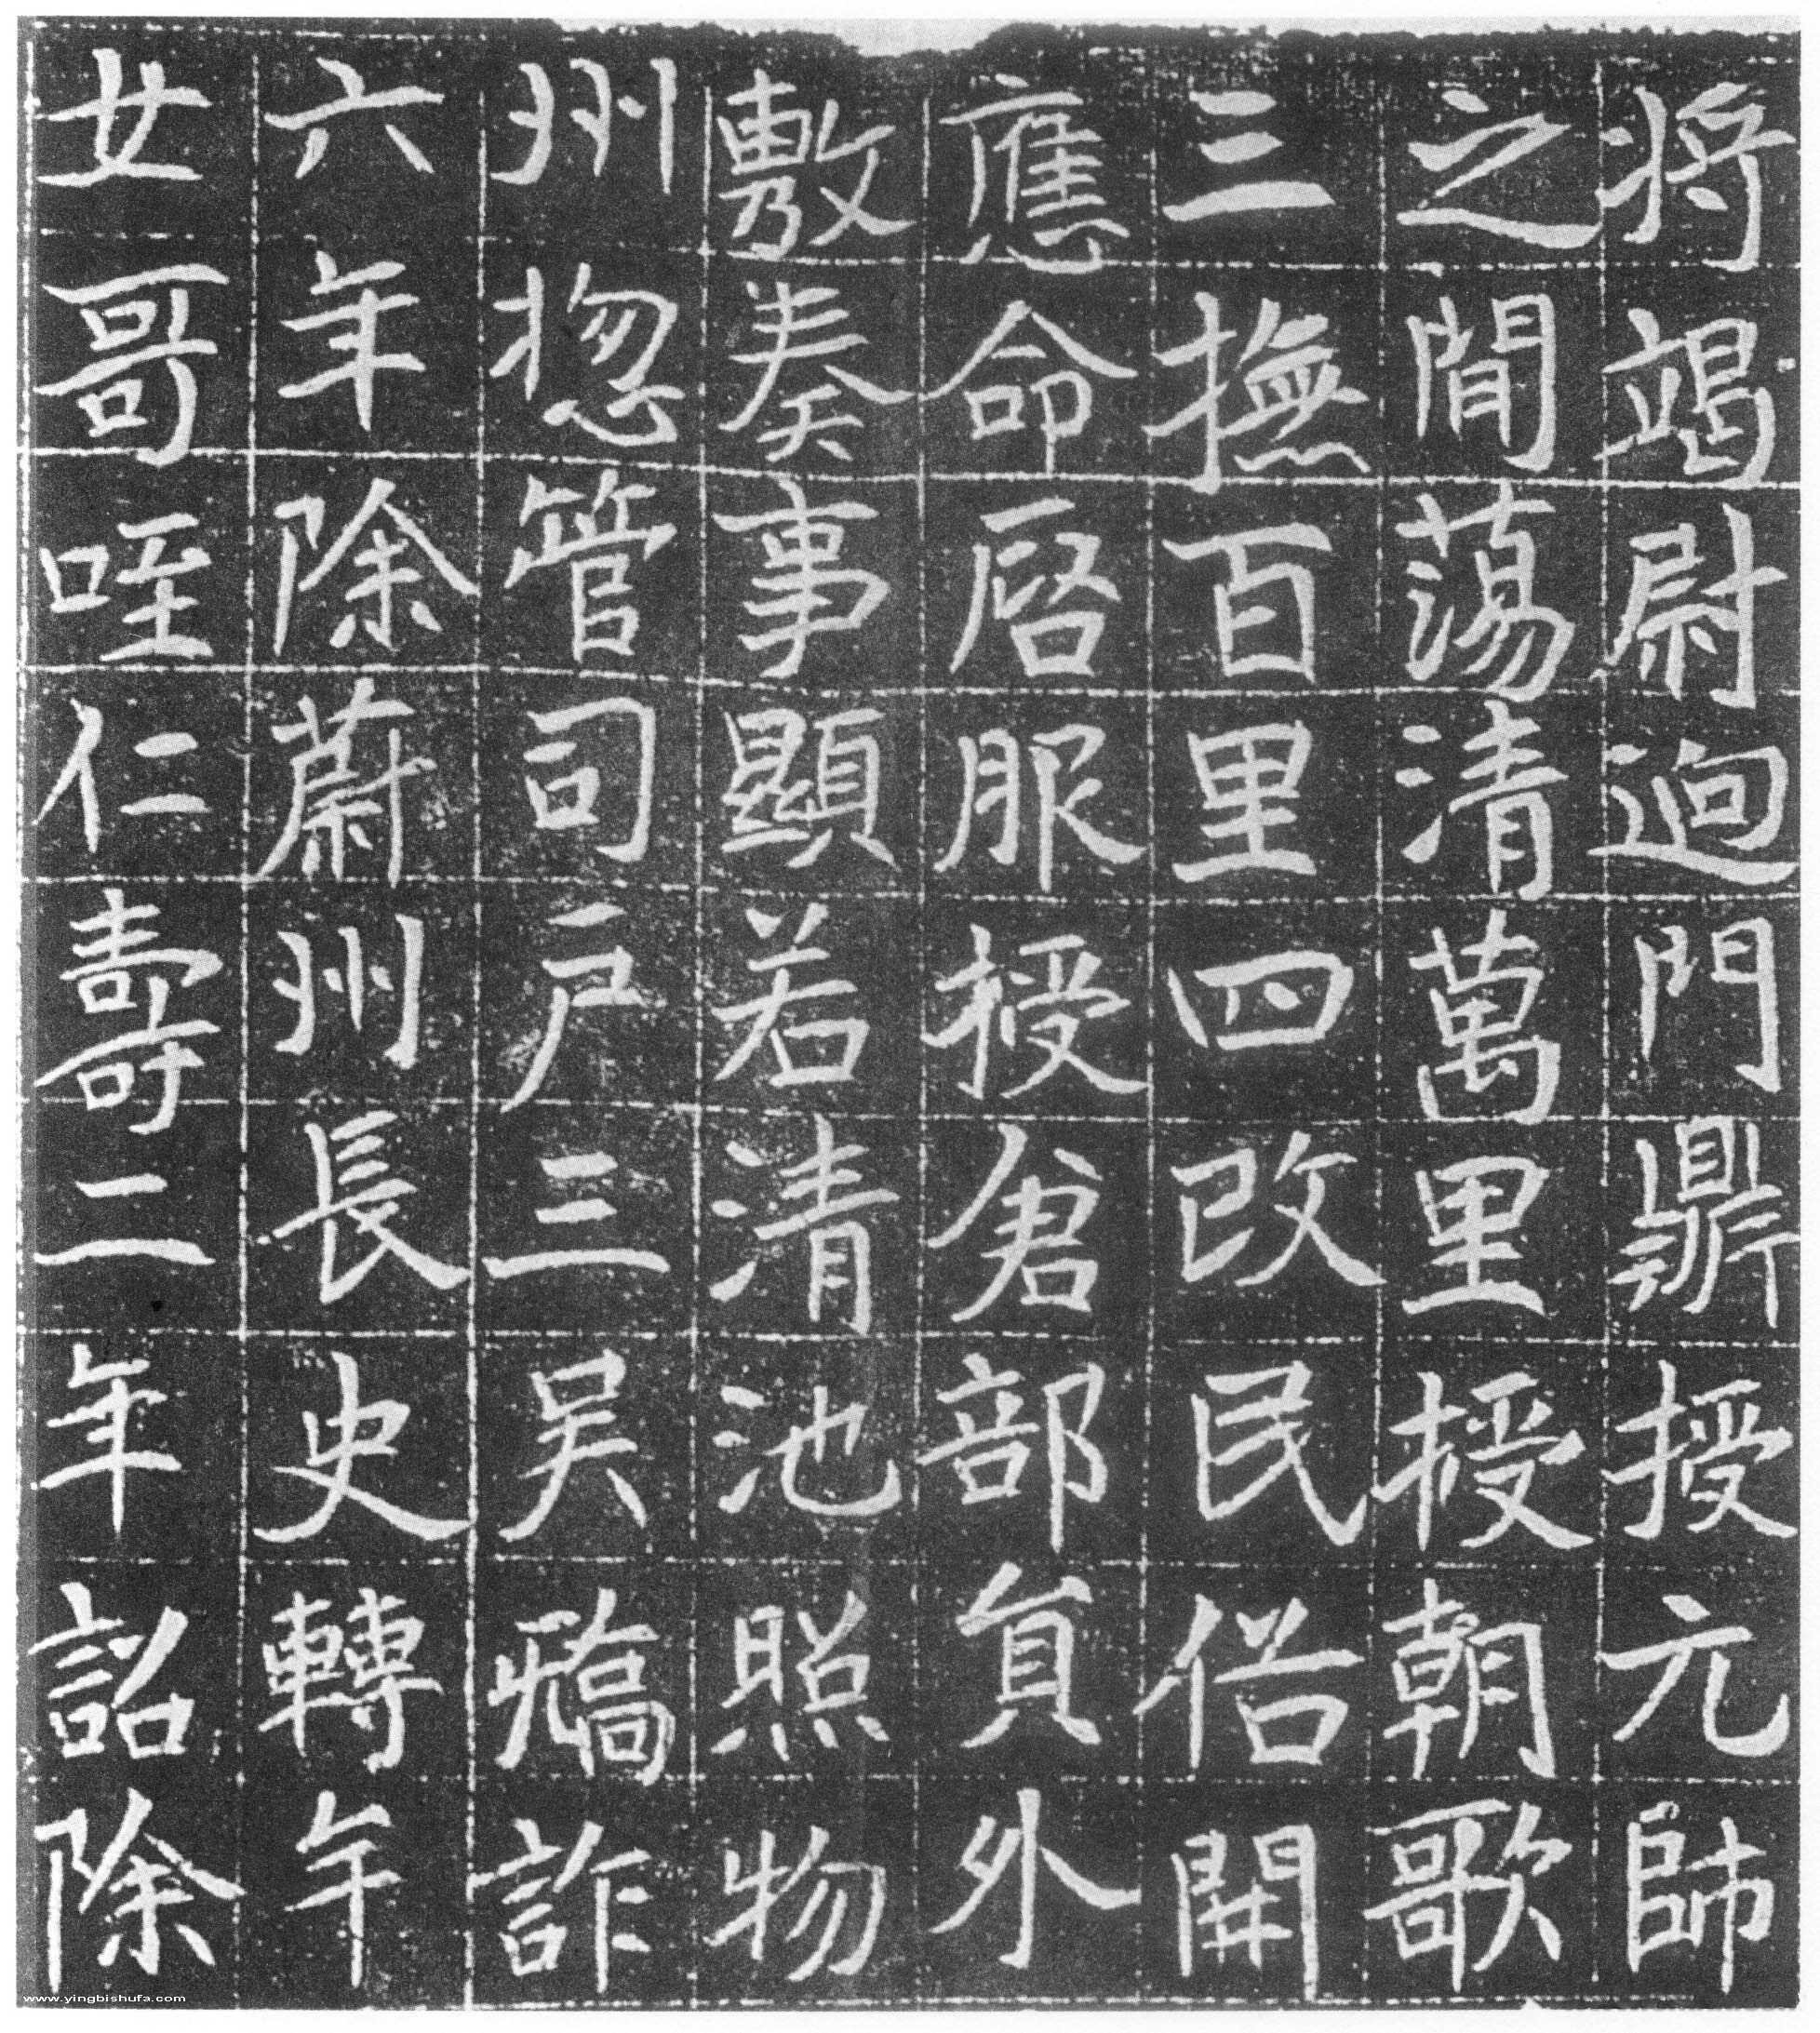 将竭尉迥門鼎授元帥
之間蕩清萬里授朝歌
三撫百里四改民俗開
應命啓服授倉部員外
敷奏事顯若清池照物
州揔管司戶三吳矯詐
六年除蔚州長史轉午
女哥咥仁壽二年詔除
www.yingbishufa.com